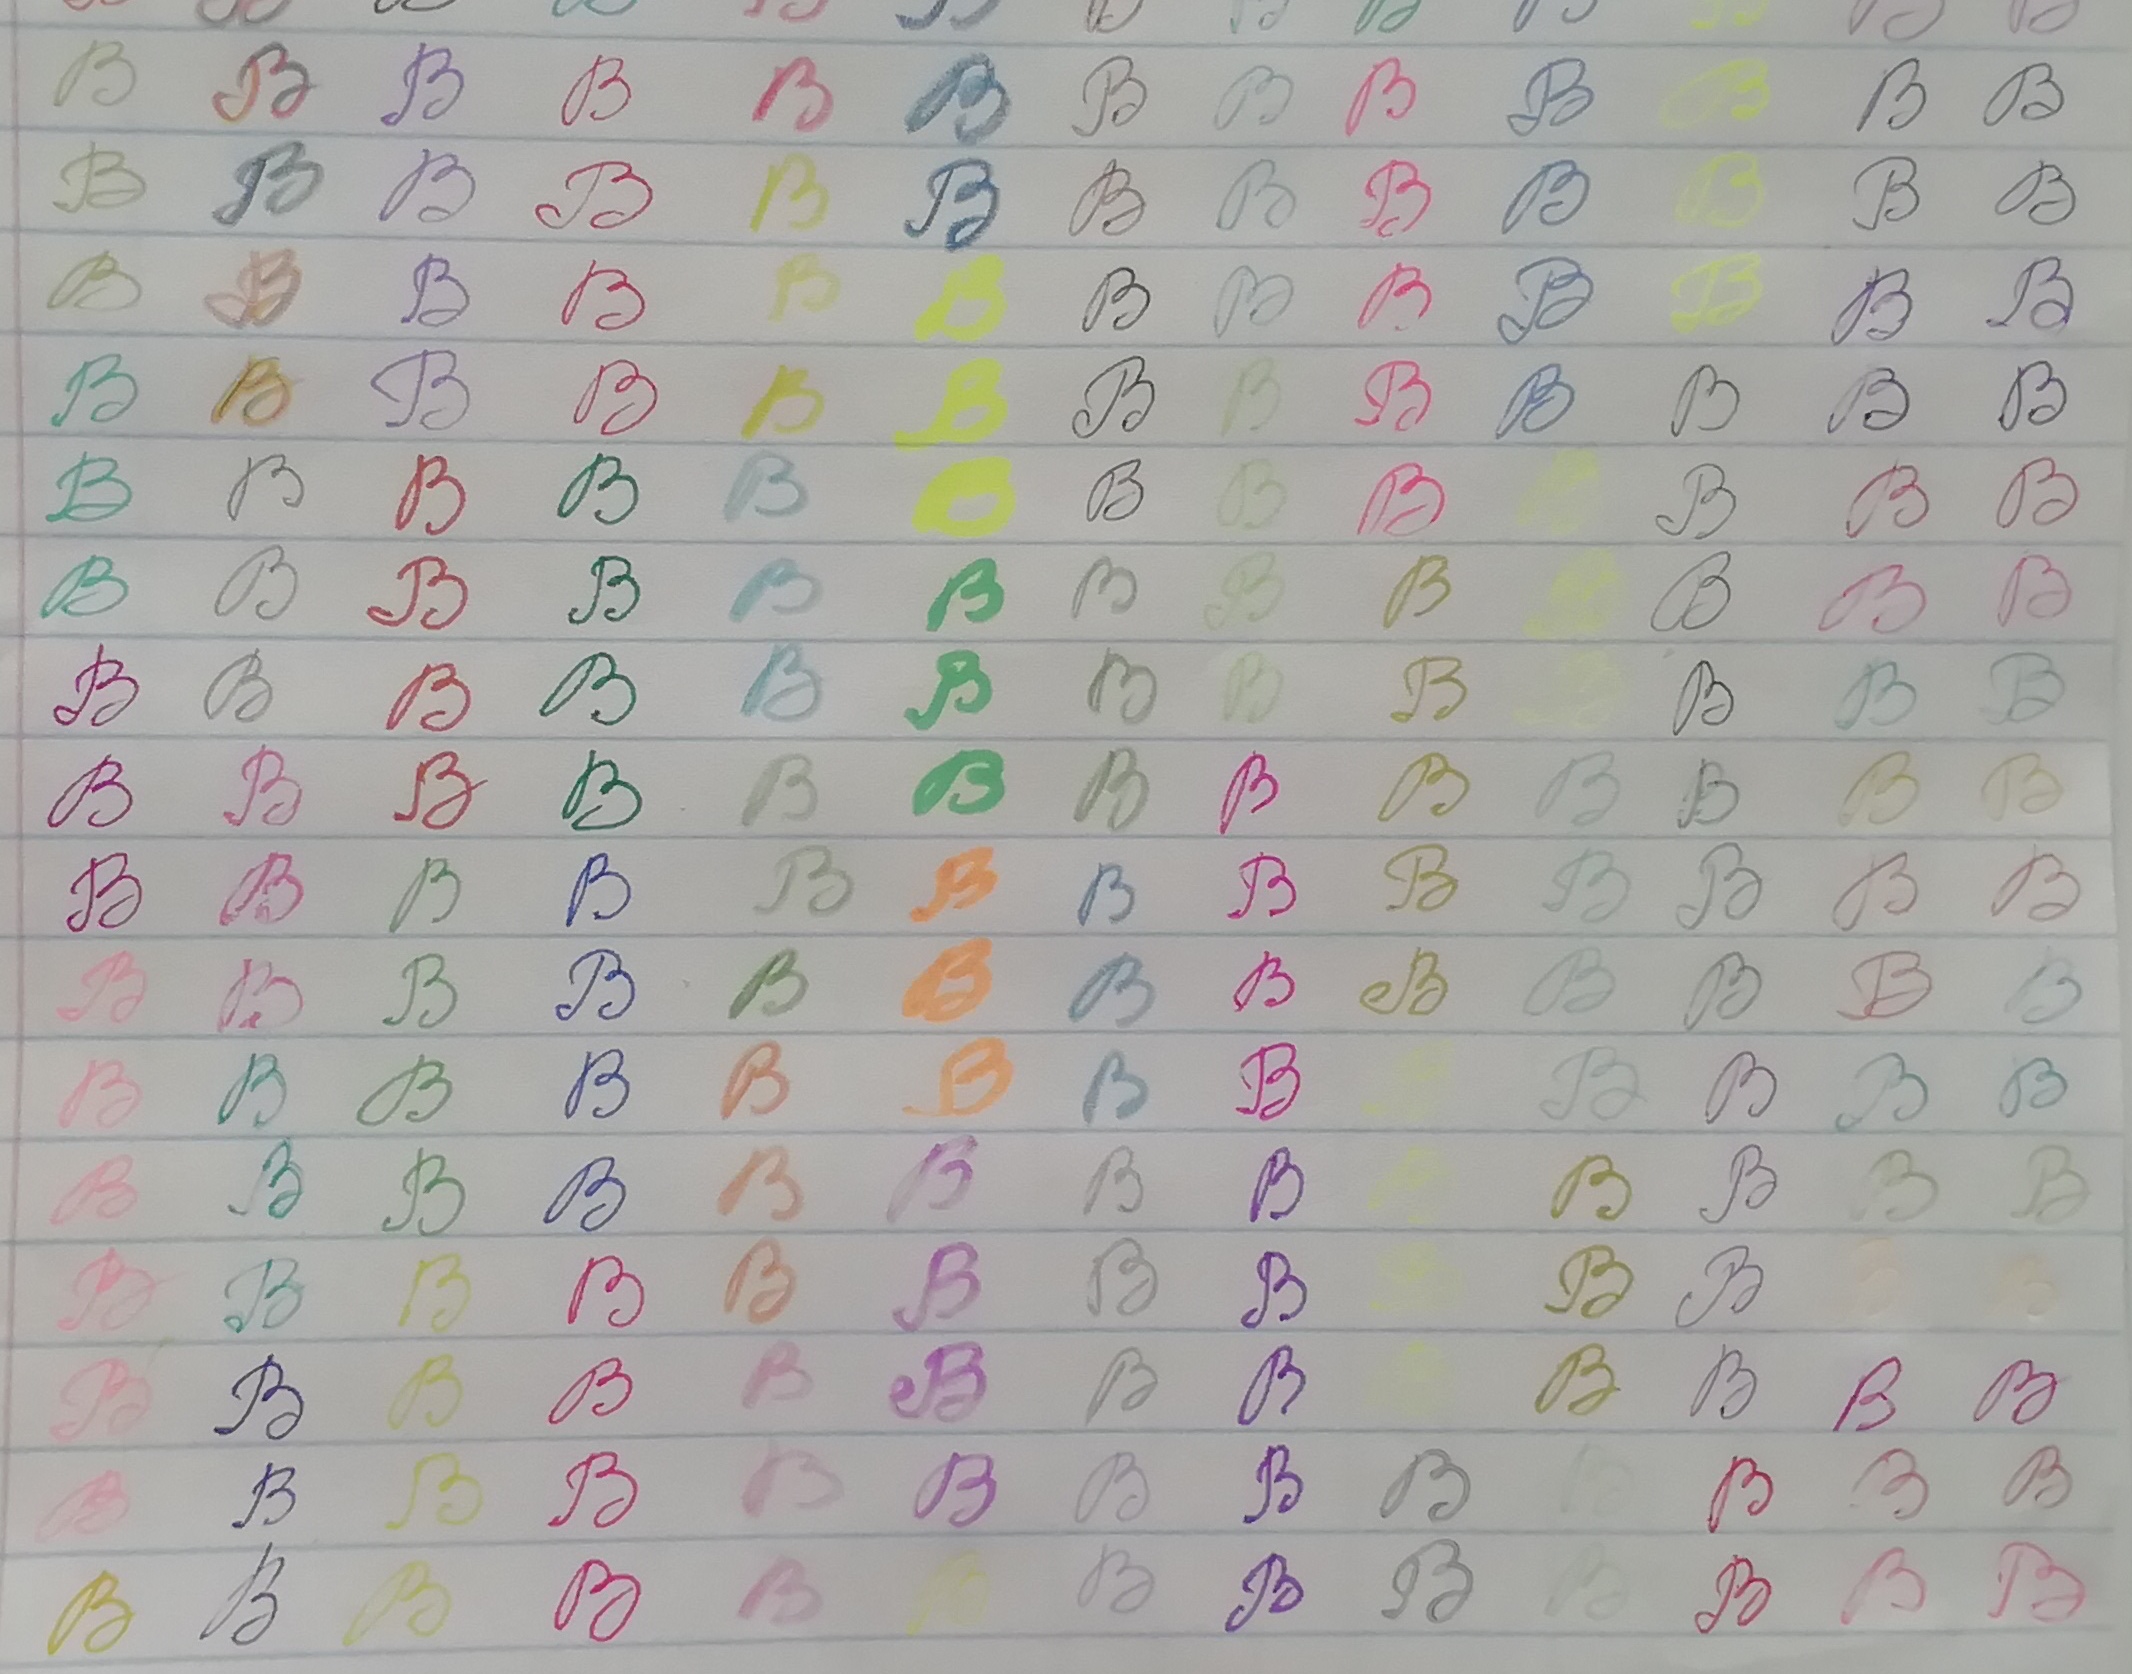 B B B B B B B B B B B B B
B B B B B B B B B B B B B
B B B B B B B B B B B B B
B B B B B B B B B B B B B
B B B B B B B B B B B B B
B B B B B B B B B B B B B
B B B B B B B B B B B B B
B B B B B B B B B B B B B
B B B B B B B B B B B B B
B B B B B B B B B B B B B
B B B B B B B B B B B B B
B B B B B B B B B B B B B
B B B B B B B B B B B
B B B B B B B B B B B B B
B B B B B B B B B B B B B
B B B B B B B B B B B B B